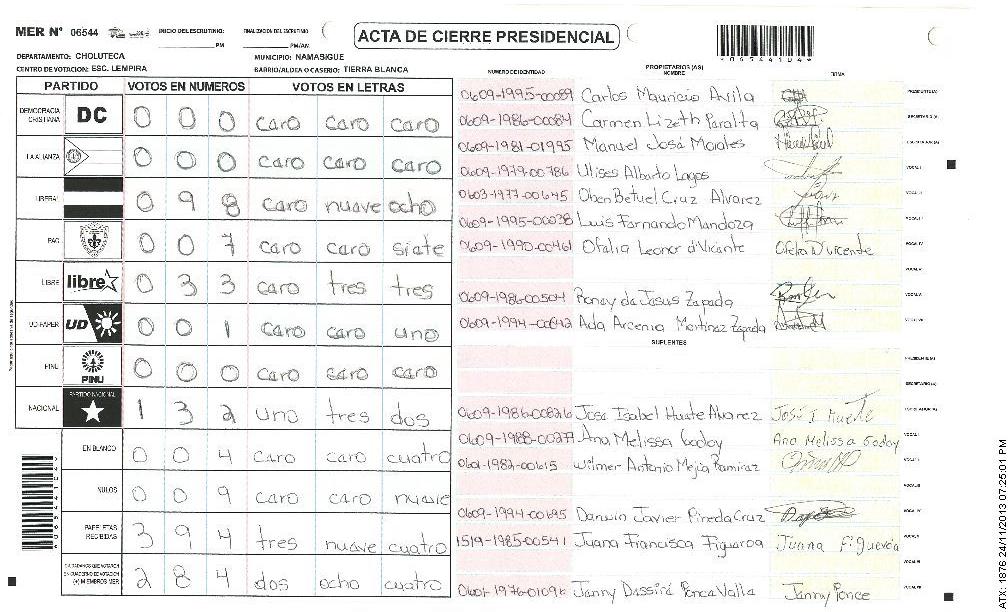 MER Nº 06544 INICIO DEL ESCRUTINIO: FINALIZACION DEL ESCRUTINIO:
PM PM/AM
ACTA DE CIERRE PRESIDENCIAL
*06544104*
DEPARTAMENTO: CHOLUTECA MUNICIPIO: NAMASIGUE
CENTRO DE VOTACION: ESC. LEMPIRA BARRIO/ALDEA O CASERIO: TIERRA BLANCA
NUMERO DE IDENTIDAD PROPIETARIOS (AS) NOMBRE FIRMA
PARTIDO VOTOS EN NUMEROS VOTOS EN LETRAS
DEMOCRACIA CRISTIANA DC 0 0 0 caro caro caro
LA ALIANZA 0 0 0 caro caro caro
LIBERAL 0 9 8 caro nuave ocho
PAC 0 0 7 caro caro siate
LIBRE libre 0 3 3 caro tres tres
UD-FAPER UD 0 0 1 caro caro uno
PINU PINU 0 0 0 caro caro caro
NACIONAL PARTIDO NACIONAL 1 3 2 uno tres dos
EN BLANCO 0 0 4 caro caro cuatro
NULOS 0 0 9 caro caro nuave
PAPELETAS RECIBIDAS 3 9 4 tres nuave cuatro
CIUDADANOS QUE VOTARON EN CUADERNO DE VOTACION (+) MIEMBROS MER 2 8 4 dos ocho cuatro
0609-1995-00089 Carlos Mauricio Avila PRESIDENTE (A)
0609-1986-00084 Carmen Lizeth Paralta SECRETARIO (A)
0609-1981-01995 Manuel José Morales ESCRUTADOR (A)
0609-1979-00786 Ulises Alberto Lagos VOCAL I
0603-1977-00645 Oben Betuel Cruz Alvarez VOCAL II
0609-1995-00038 Luis Fernando Mandoza VOCAL III
0609-1990-00461 Ofalia Leonor d'Vicante Ofelia D'vicente VOCAL IV
VOCAL V
0609-1986-00504 Ronay da Jasus Zapada VOCAL VI
0609-1994-00042 Ada Arcenia Martinaz Zapada VOCAL VII
SUPLENTES
PRESIDENTE (A)
SECRETARIO (A)
0609-1986-00826 Josa Isabel Huate Alvarez José I Huete ESCRUTADOR (A)
0609-1988-00277 Ana Melissa Goday Ana Melissa Goday VOCAL I
0601-1982-00615 Wilmer Antonio Mejia Ramiraz VOCAL II
VOCAL III
0609-1994-00695 Darwin Javier Pineda Cruz VOCAL IV
1519-1985-00541 Juana Francisca Figuaroa Juana Figueroa VOCAL V
VOCAL VI
0601-1976-01096 Janny Dassiré Ponca Valla Janny Ponce VOCAL VII
ATX: 1876 24/11/2013 07:25:01 PM